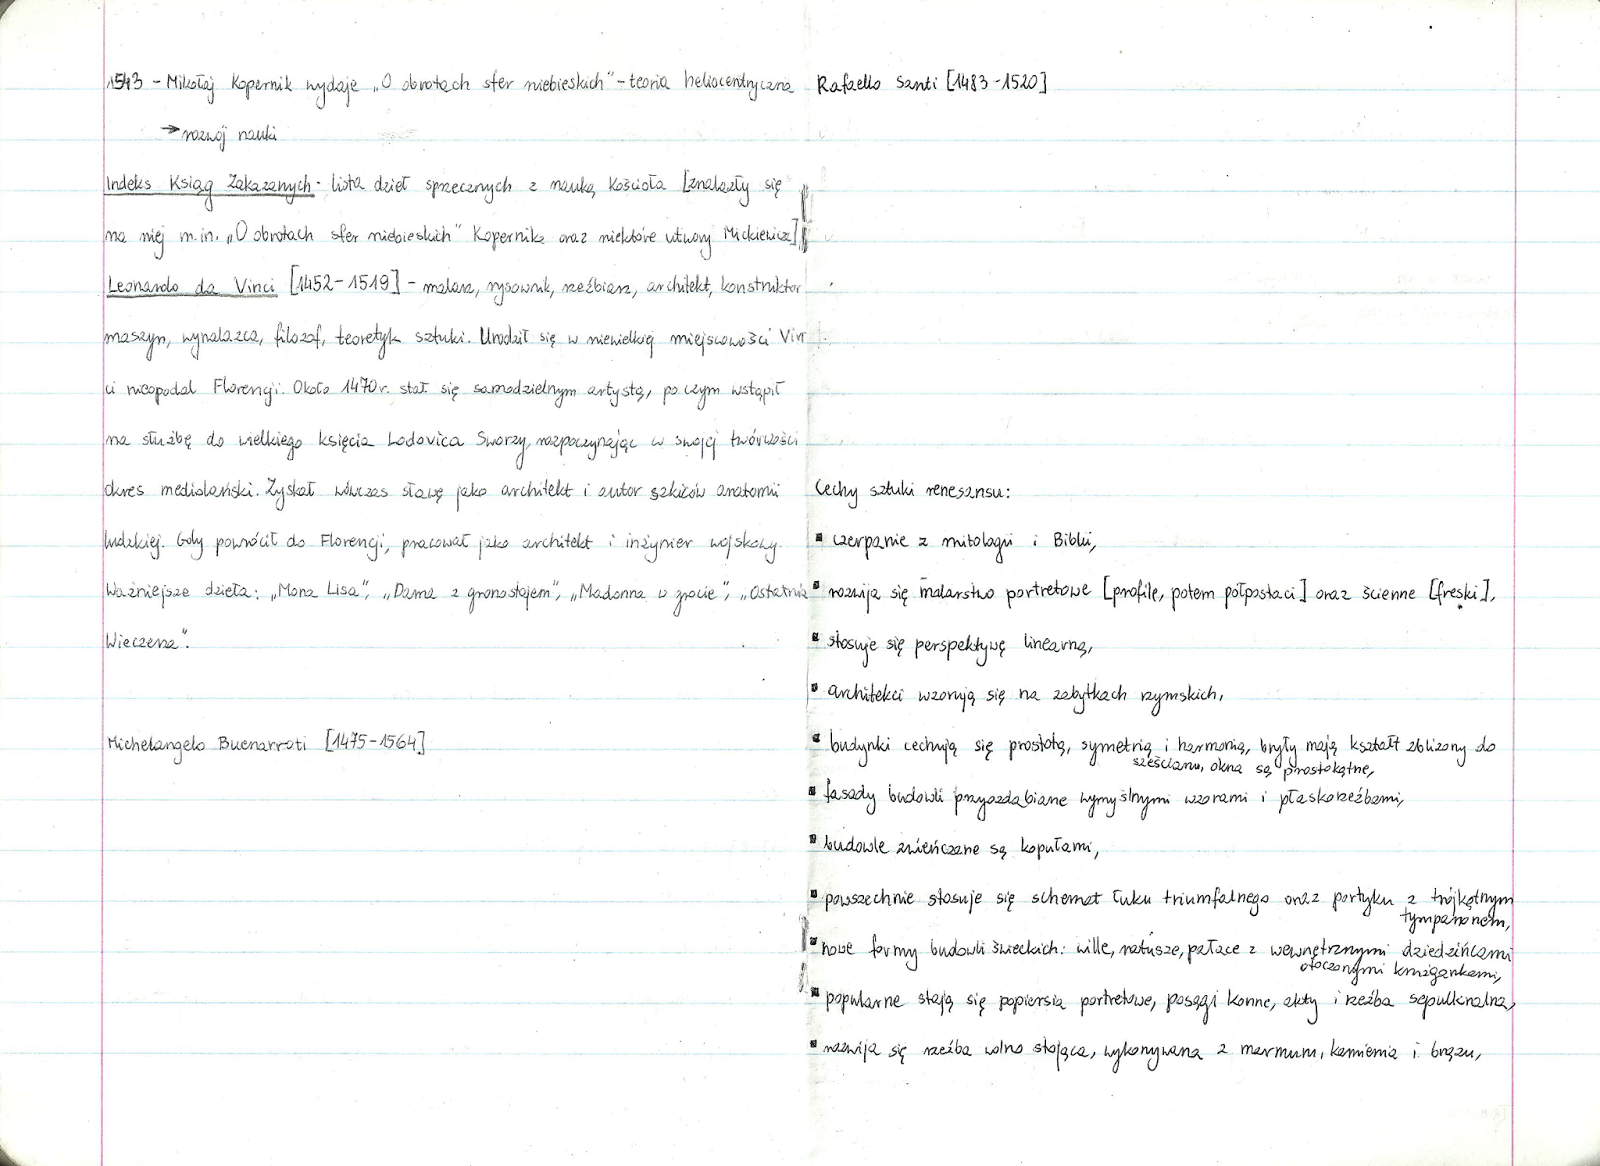 1543 - Mikołaj Kopernik wydaje „O obrotach sfer niebieskich" - teoria heliocentryczna
→ rozwój nauki
Indeks Ksiąg Zakazanych - lista dzieł sprzecznych z nauką Kościoła [znalazły się
na niej m.in. „O obrotach sfer niebieskich" Kopernika oraz niektóre utwory Mickiewicza]
Leonardo da Vinci [1452-1519] - malarz, rysownik, rzeźbiarz, architekt, konstruktor
maszyn, wynalazca, filozof, teoretyk sztuki. Urodził się w niewielkiej miejscowości Vin
ci nieopodal Florencji. Około 1470r. stał się samodzielnym artystą, po czym wstąpił
na służbę do wielkiego księcia Lodovica Sworzy, rozpoczynając w swojej twórczości
okres mediolański. Zyskał wówczas sławę jako architekt i autor szkiców anatomii
ludzkiej. Gdy powrócił do Florencji, pracował jako architekt i inżynier wojskowy.
Ważniejsze dzieła: „Mona Lisa", „Dama z gronostajem", „Madonna w grocie", „Ostatnia
Wieczerza".
Michelangelo Buenarroti [1475-1564]
Rafaello Santi [1483-1520]
Cechy sztuki renesansu:
▪ czerpanie z mitologii i Biblii,
▪ rozwija się malarstwo portretowe [profile, potem półpostaci] oraz ścienne [freski],
▪ stosuje się perspektywę linearną,
▪ architekci wzorują się na zabytkach rzymskich,
▪ budynki cechują się prostotą, symetrią i harmonią, bryły mają kształt zbliżony do
sześcianu, okna są prostokątne,
▪ fasady budowli przyozdabiane wymyślnymi wzorami i płaskorzeźbami,
▪ budowle zwieńczane są kopułami,
▪ powszechnie stosuje się schemat łuku triumfalnego oraz portyku z trójkątnym
tympanonem,
▪ nowe formy budowli świeckich: wille, ratusze, pałace z wewnętrznymi dziedzińcami
otoczonymi krużgankami,
▪ popularne stają się popiersia portretowe, posągi konne, akty i rzeźba sepulkralna,
▪ rozwija się rzeźba wolno stojąca, wykonywana z marmuru, kamienia i brązu,